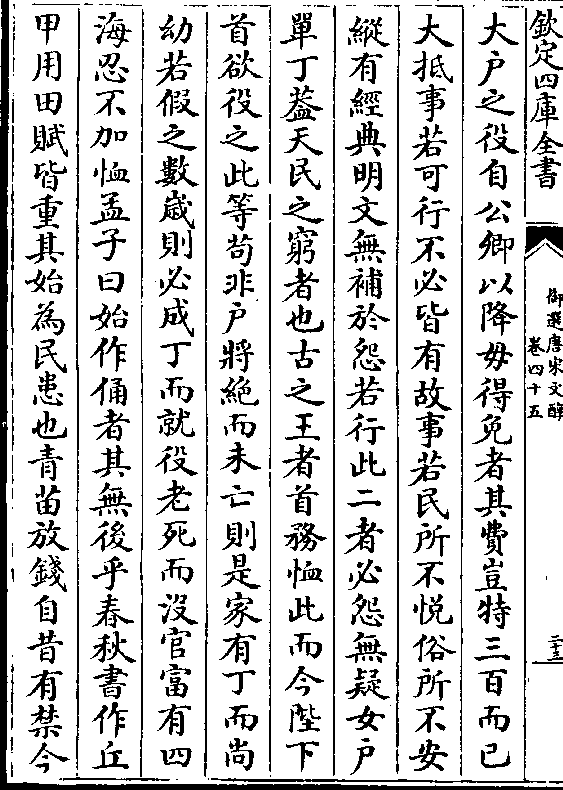 欽定四庫全書
御選唐宋文醇
卷四十五
二十三
大户之役自公卿以降毋得免者其費豈特三百而已
大抵事若可行不必皆有故事若民所不悦俗所不安
縱有經典明文無補於怨若行此二者必怨無疑女户
單丁葢天民之窮者也古之王者首務恤此而今陛下
首欲役之此等苟非户將絶而未亡則是家有丁而尚
幼若假之數歲則必成丁而就役老死而沒官富有四
海忍不加恤孟子曰始作俑者其無後乎春秋書作丘
甲用田賦皆重其始為民患也青苗放錢自昔有禁今